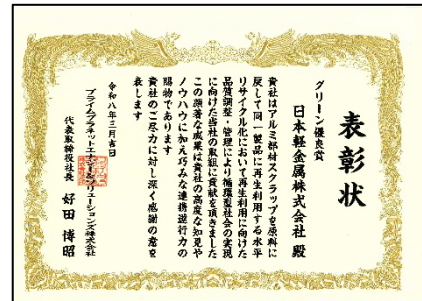 表彰状
グリーン優良賞
日本軽金属株式会社 殿
貴社はアルミ部材スクラップを原料に
戻して同一製品に再生利用する水平
リサイクル化において再生利用に向けた
品質調整・管理により循環型社会の実現
に向けた当社の取組に貢献を頂きました
この顕著な成果は貴社の高度な知見や
ノウハウに加え巧みな連携遂行力の
賜物であります
貴社のご尽力に対し深く感謝の意を
表します
令和八年二月吉日
プライムプラネットエナジー&ソリューションズ株式会社
代表取締役社長 好田 博昭